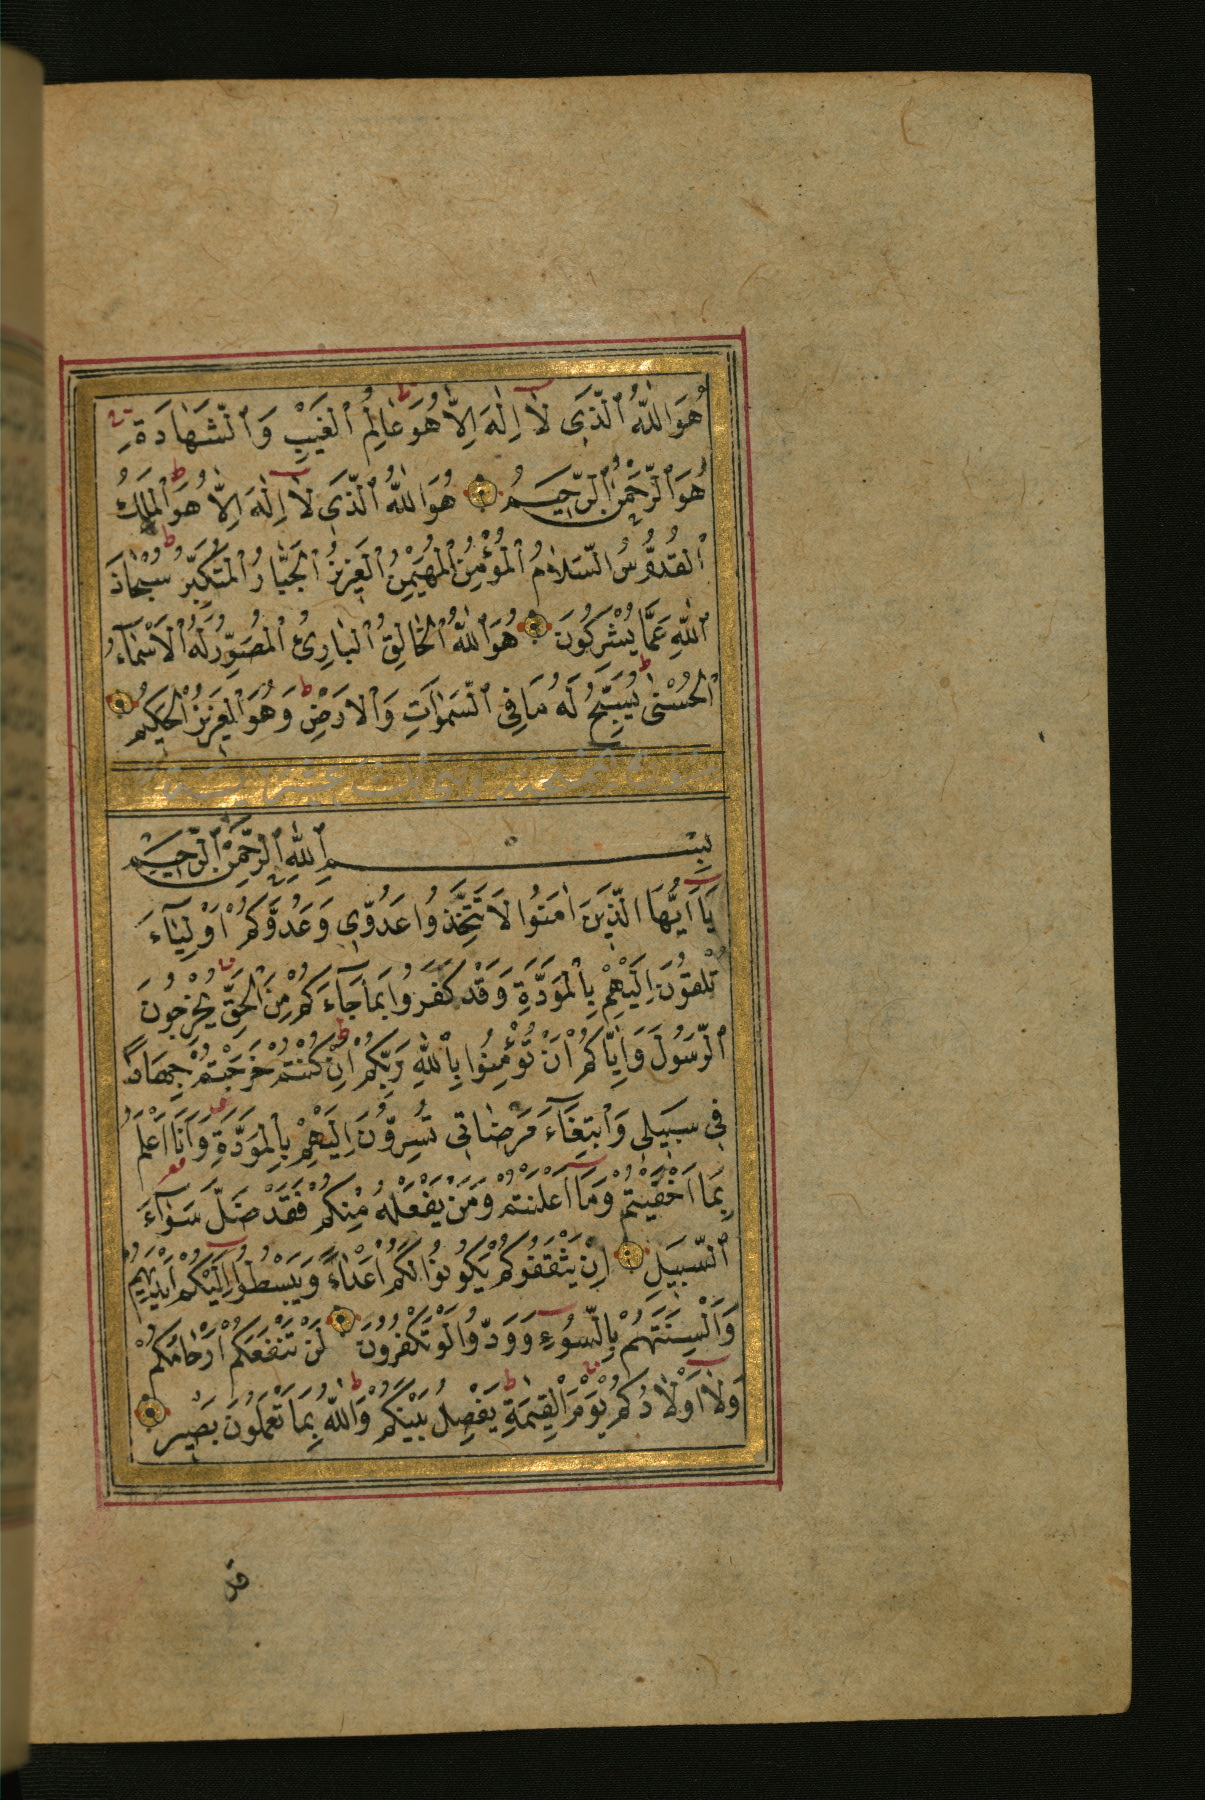 هُوَ اللّٰهُ ٱلَّذِي لَا اِلٰهَ اِلَّا هُوَ عَالِمُ ٱلْغَيْبِ وَٱلشَّهَادَةِ
هُوَ ٱلرَّحْمٰنُ ٱلرَّحِيمُ هُوَ اللّٰهُ ٱلَّذِي لَا اِلٰهَ اِلَّا هُوَ ٱلْمَلِكُ
ٱلْقُدُّوسُ ٱلسَّلَامُ ٱلْمُؤْمِنُ ٱلْمُهَيْمِنُ ٱلْعَزِيزُ ٱلْجَبَّارُ ٱلْمُتَكَبِّرُ سُبْحَانَ
ٱللّٰهِ عَمَّا يُشْرِكُونَ هُوَ ٱللّٰهُ ٱلْخَالِقُ ٱلْبَارِئُ ٱلْمُصَوِّرُ لَهُ ٱلْاَسْمَآءُ
ٱلْحُسْنٰى يُسَبِّحُ لَهُ مَا فِي ٱلسَّمٰوَاتِ وَٱلْاَرْضِ وَهُوَ ٱلْعَزِيزُ ٱلْحَكِيمُ
بِسْمِ ٱللّٰهِ ٱلرَّحْمٰنِ ٱلرَّحِيمِ
يَآ اَيُّهَا الَّذِينَ اٰمَنُوا لَا تَتَّخِذُوا عَدُوِّي وَعَدُوَّكُمْ اَوْلِيَآءَ
تُلْقُونَ اِلَيْهِمْ بِٱلْمَوَدَّةِ وَقَدْ كَفَرُوا بِمَا جَآءَكُمْ مِنَ ٱلْحَقِّ يُخْرِجُونَ
ٱلرَّسُولَ وَاِيَّاكُمْ اَنْ تُؤْمِنُوا بِٱللّٰهِ رَبِّكُمْ اِنْ كُنْتُمْ خَرَجْتُمْ جِهَادًا
فِي سَبِيلِي وَٱبْتِغَآءَ مَرْضَاتِي تُسِرُّونَ اِلَيْهِمْ بِٱلْمَوَدَّةِ وَاَنَا اَعْلَمُ
بِمَا اَخْفَيْتُمْ وَمَآ اَعْلَنْتُمْ وَمَنْ يَفْعَلْهُ مِنْكُمْ فَقَدْ ضَلَّ سَوَآءَ
ٱلسَّبِيلِ اِنْ يَثْقَفُوكُمْ يَكُونُوا لَكُمْ اَعْدَآءً وَيَبْسُطُوا اِلَيْكُمْ اَيْدِيَهُمْ
وَاَلْسِنَتَهُمْ بِالسُّوءِ وَوَدُّوا لَوْ تَكْفُرُونَ لَنْ تَنْفَعَكُمْ اَرْحَامُكُمْ
وَلَآ اَوْلَادُكُمْ يَوْمَ ٱلْقِيٰمَةِ يَفْصِلُ بَيْنَكُمْ وَاللّٰهُ بِمَا تَعْمَلُونَ بَصِيرٌ
قد